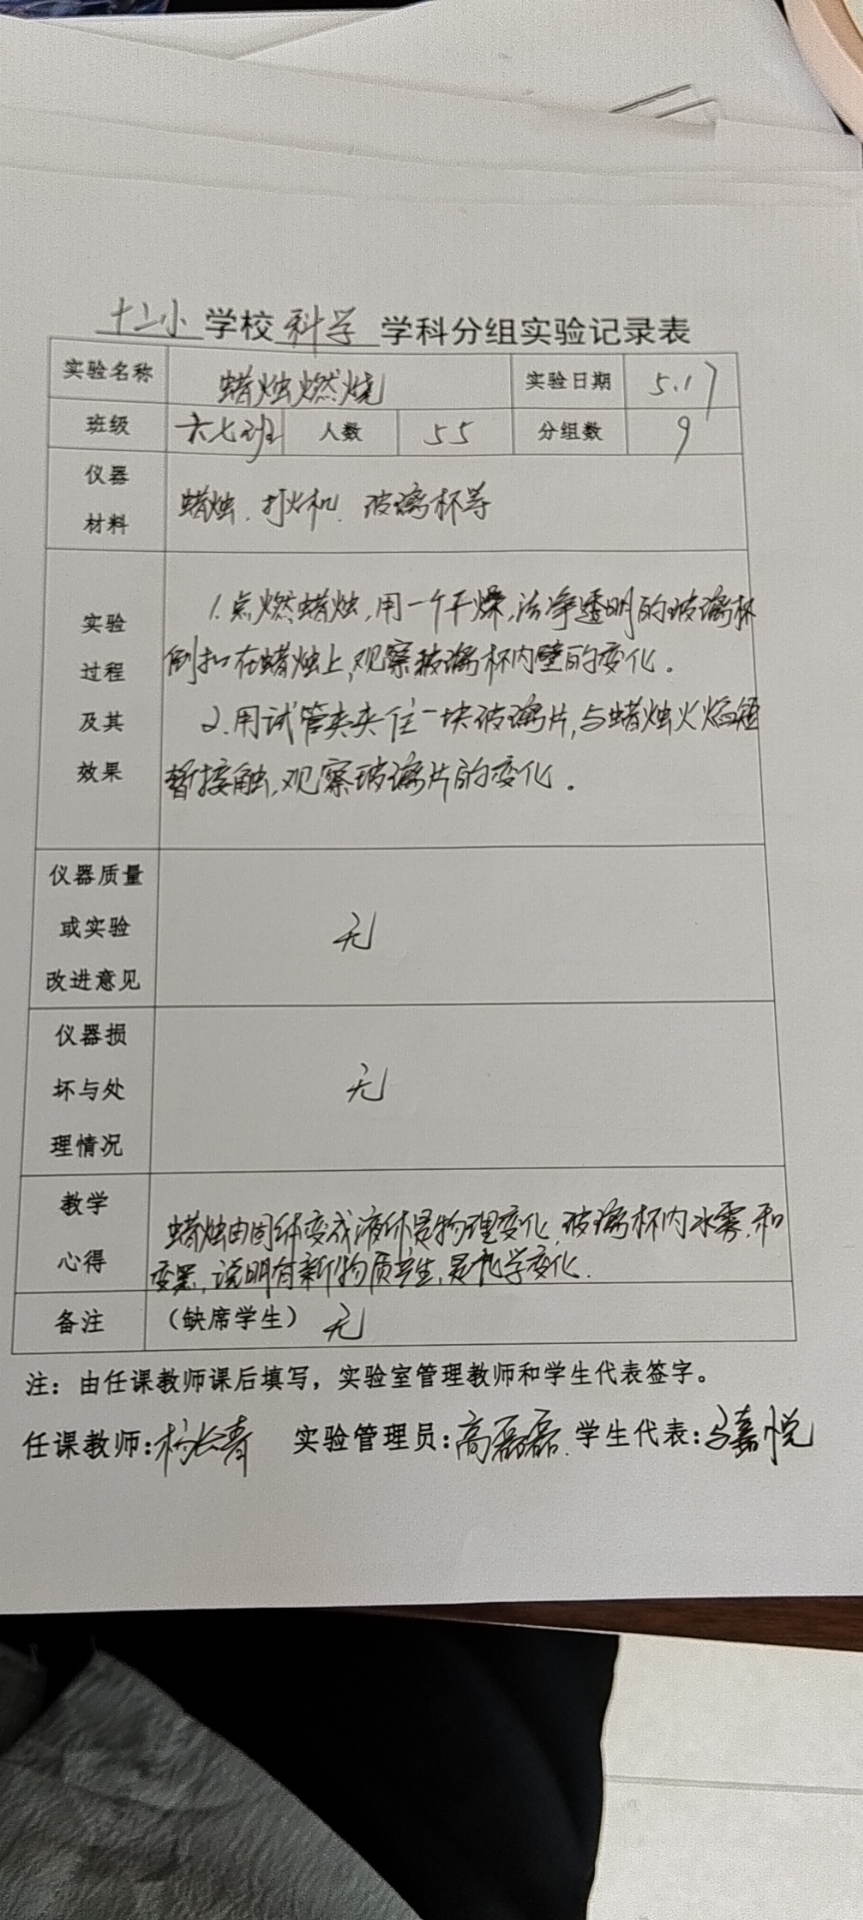 十二小学校科学学科分组实验记录表
实验名称 蜡烛燃烧 实验日期 5.17
班级 六七班 人数 55 分组数 9
仪器
材料
蜡烛、打火机、玻璃杯等
实验
过程
及其
效果
1.点燃蜡烛,用一个干燥,洁净透明的玻璃杯
倒扣在蜡烛上,观察玻璃杯内壁的变化.
2.用试管夹夹住一块玻璃片,与蜡烛火焰短
暂接触,观察玻璃片的变化.
仪器质量
或实验
改进意见
无
仪器损
坏与处
理情况
无
教学
心得
蜡烛由固体变成液体是物理变化,玻璃杯内水雾,和
变黑,说明有新物质产生,是化学变化.
备注 (缺席学生) 无
注:由任课教师课后填写,实验室管理教师和学生代表签字。
任课教师:杨长青 实验管理员:高磊磊. 学生代表:马嘉悦